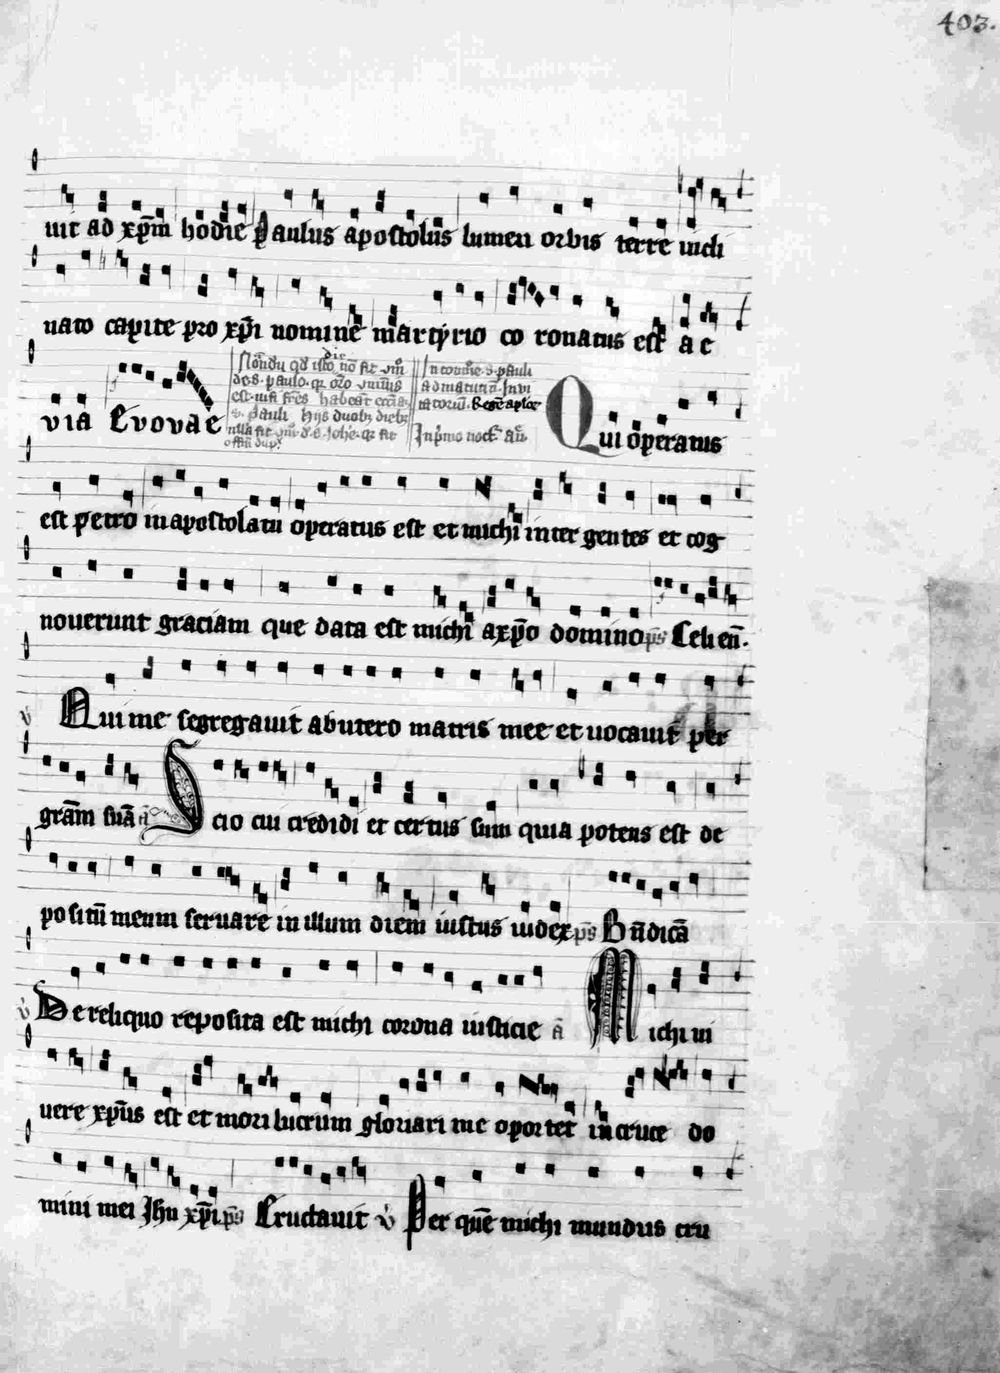 403.
uit ad xp̄m hodie Paulus apostolus lumen orbis terre incli
nato capite pro xp̄i nomine martyrio co ronatus est a e
via Evovae
die
In com̄e s. pauli
ad matutin̄. Invi
tatoriū. Regē aplōr
Qui operatus
est petro in apostolatu operatus est et michi inter gentes et cog
nouerunt graciam que data est michi a xp̄o domino p̄s Celi en̄.
v Qui me segregauit ab utero matris mee et uocauit per
grām suā ā Scio cui credidi et certus sum quia potens est de
positū meum seruare in illum diem iustus iudex p̄s Bn̄dicā
v De reliquo reposita est michi corona iusticie ā Michi ui
uere xp̄us est et mori lucrum gloriari me oportet in cruce do
mini mei Jhu xp̄i p̄s Eructauit v Per quē michi mundus cru